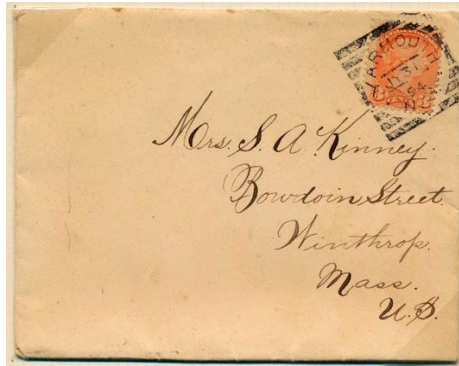 YARMOUTH
31
94
Mrs. S. A. Kinney.
Bowdoin Street.
Winthrop.
Mass.
U.S.